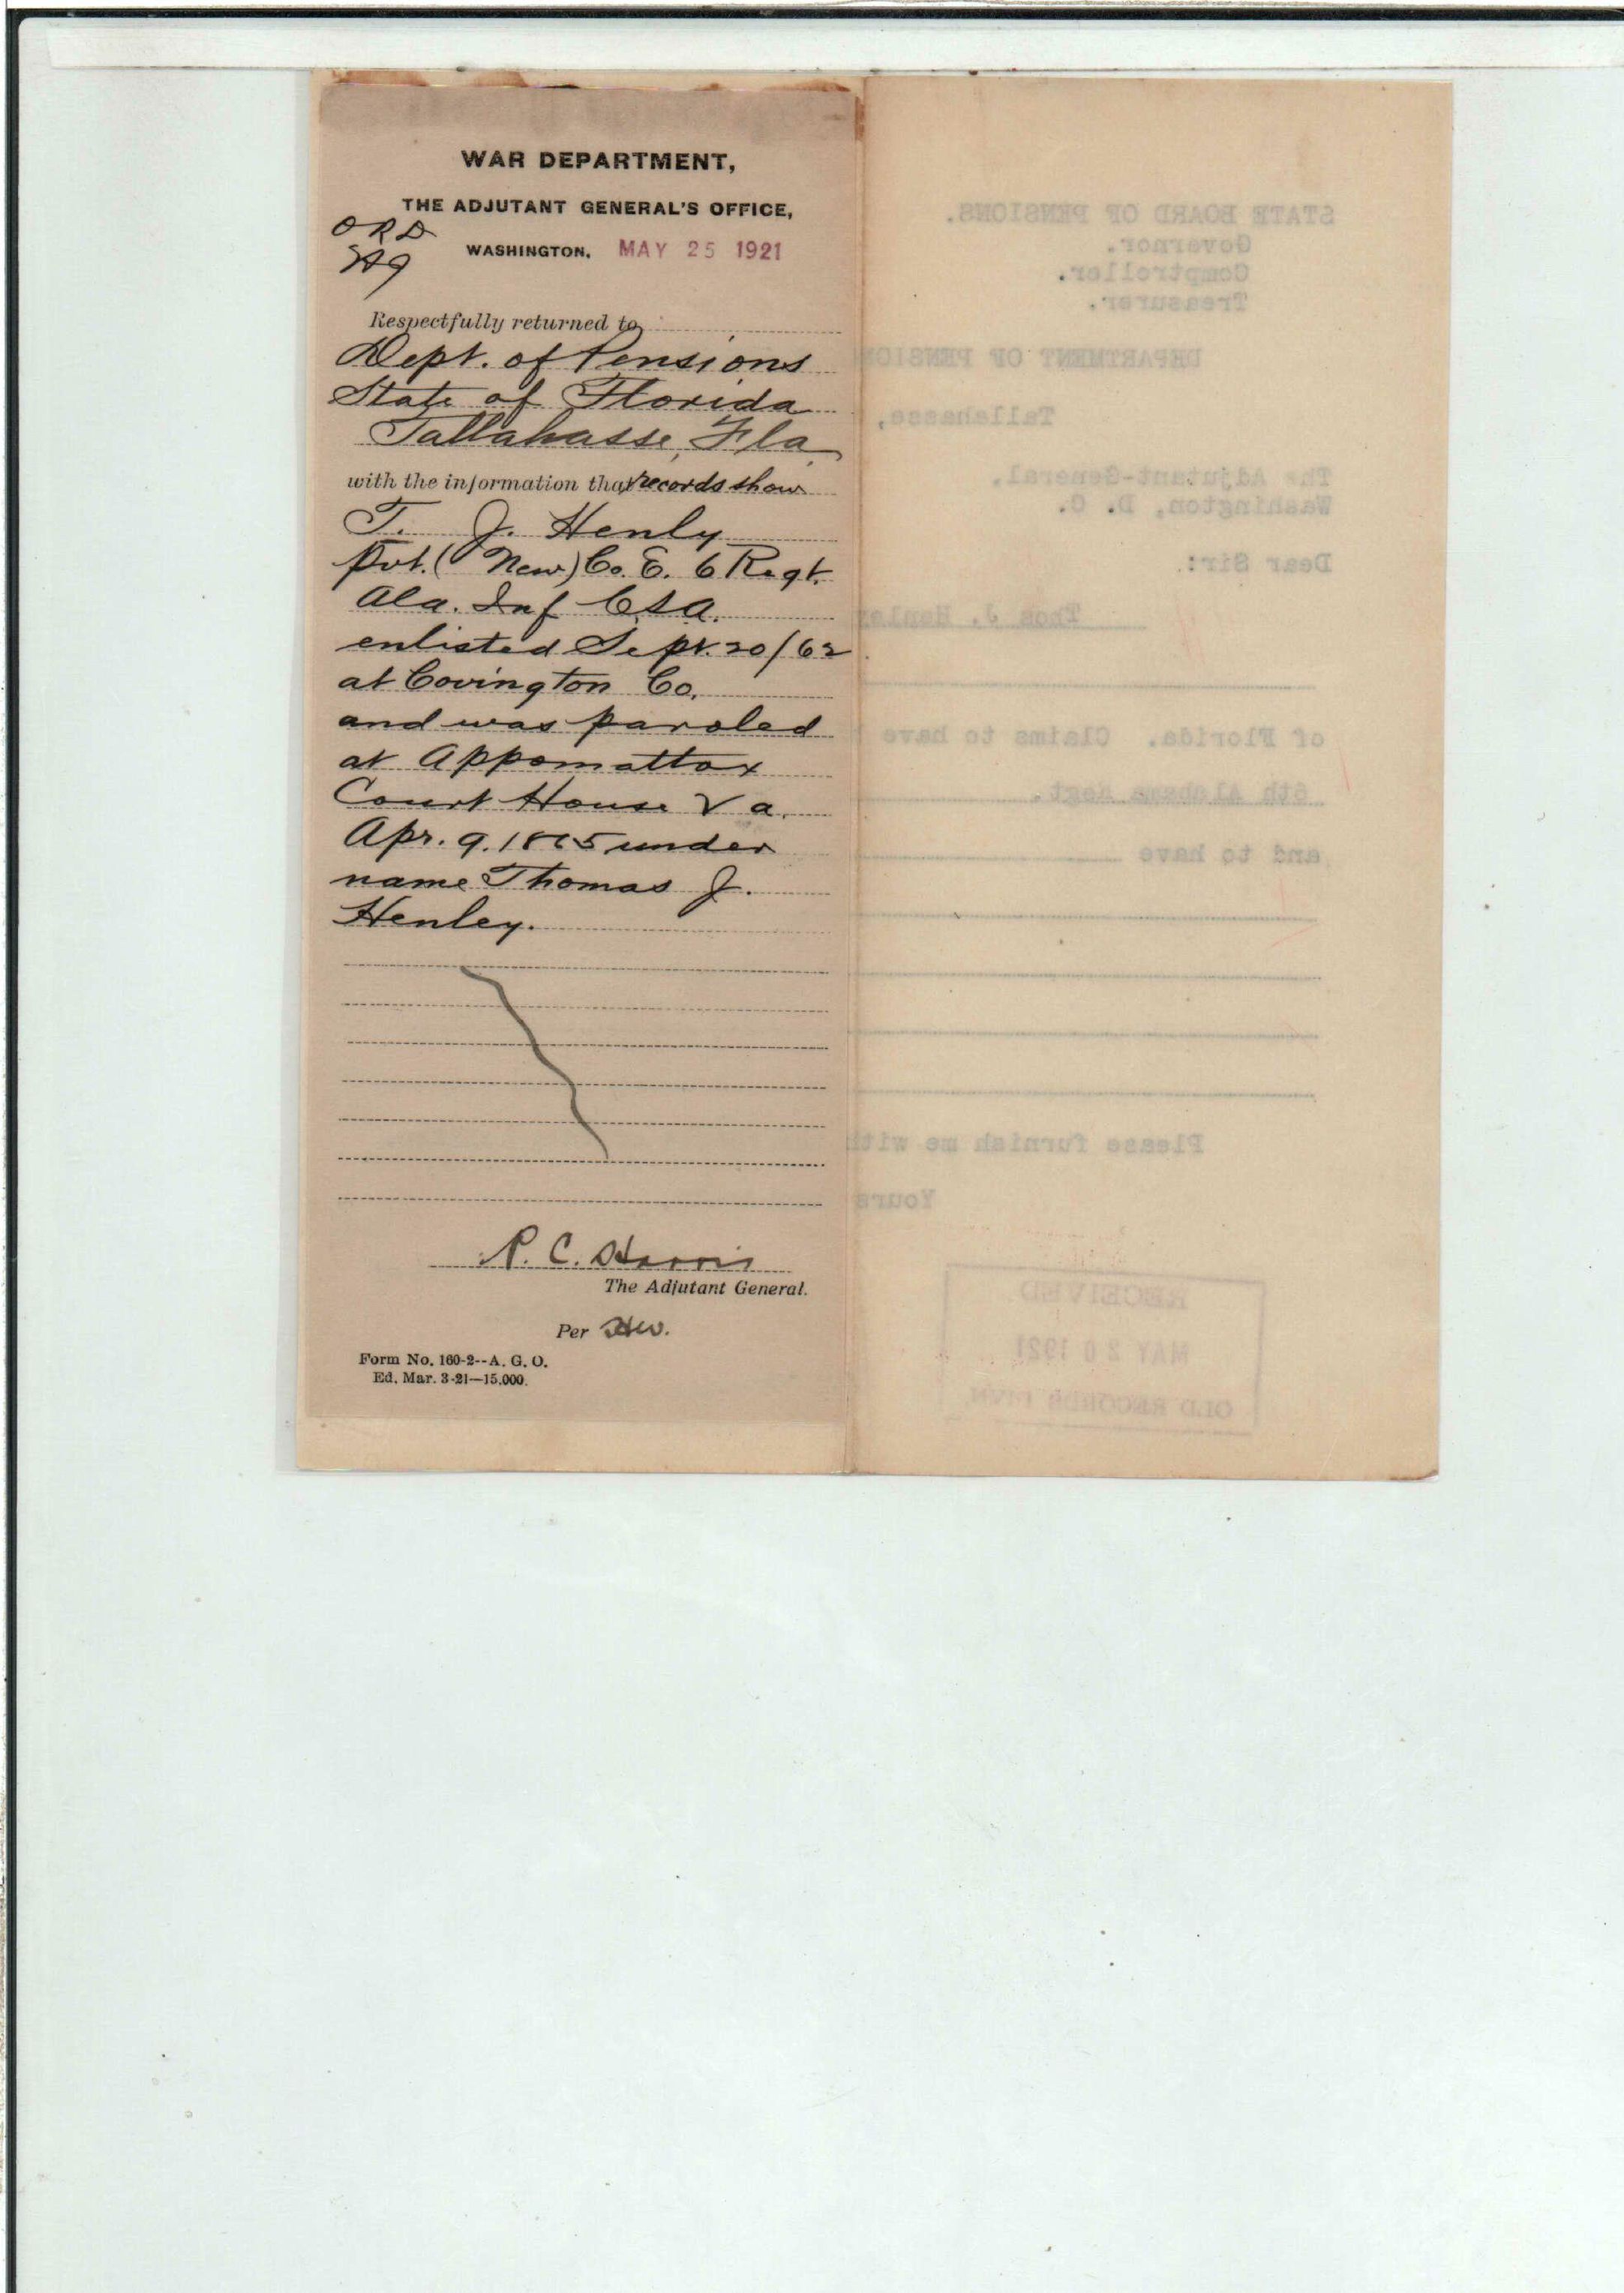 WAR DEPARTMENT,
THE ADJUTANT GENERAL'S OFFICE,
ORD
WASHINGTON, MAY 25 1921
Respectfully returned to
Dept. of Pensions
State of Florida
Tallahasse, Fla
with the information that records show
T. J. Henly
Pvt. (New) Co. E. 6 Regt.
Ala. Inf C.S.A.
enlisted Sept. 20/62
at Covington Co.
and was paroled
at Appomattox
Court House Va.
Apr. 9. 1865 under
name Thomas J.
Henley.
P. C. Harris
The Adjutant General.
Per HW.
Form No. 160-2--A. G. O.
Ed. Mar. 3-21—15,000.
STATE BOARD OF PENSIONS.
Governor.
Comptroller.
Treasurer.
DEPARTMENT OF PENSION
Tallahassee,
The Adjutant-General,
Washington, D. C.
Dear Sir:
Thos J. Henley
of Florida. Claims to have
6th Alabama Regt.
and to have
Please furnish me with
Yours
RECEIVED
MAY 20 1921
OLD RECORDS DIVN.